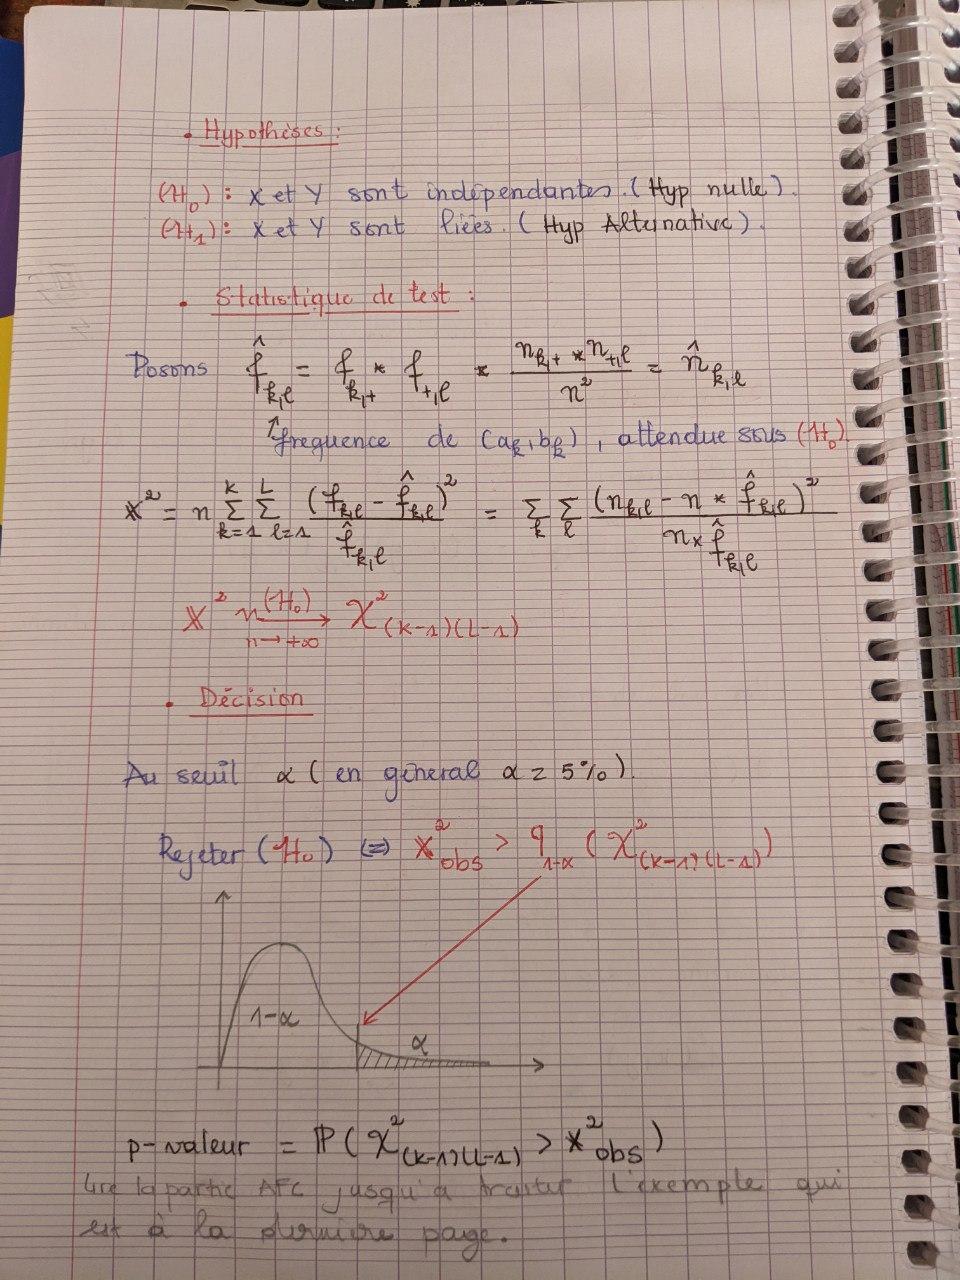 • Hypothèses :
(H₀) : X et Y sont indépendantes. (Hyp nulle).
(H₁) : X et Y sont liées. (Hyp Alternative).
• Statistique de test :
Posons f̂_{k,l} = f_{k,+} * f_{+,l} * \frac{n_{k,+} * n_{+,l}}{n²} = n̂_{k,l}
↑ frequence de (a_k, b_k), attendue sous (H₀).
X² = n Σ_{k=1}^{K} Σ_{l=1}^{L} \frac{(f_{k,l} - f̂_{k,l})²}{f̂_{k,l}} = Σ_k Σ_l \frac{(n_{k,l} - n * f̂_{k,l})²}{n × f̂_{k,l}}
X² \xrightarrow[n→+∞]{(H₀)} χ²_{(K-1)(L-1)}
• Décision
Au seuil α (en général α = 5%).
Rejeter (H₀) ⇔ X²_{obs} > q_{1-α} (χ²_{(K-1)(L-1)})
1-α
α
p-valeur = ℙ(χ²_{(K-1)(L-1)} > X²_{obs})
Lire la partie AFC jusqu'à traiter l'exemple qui
est à la dernière page.